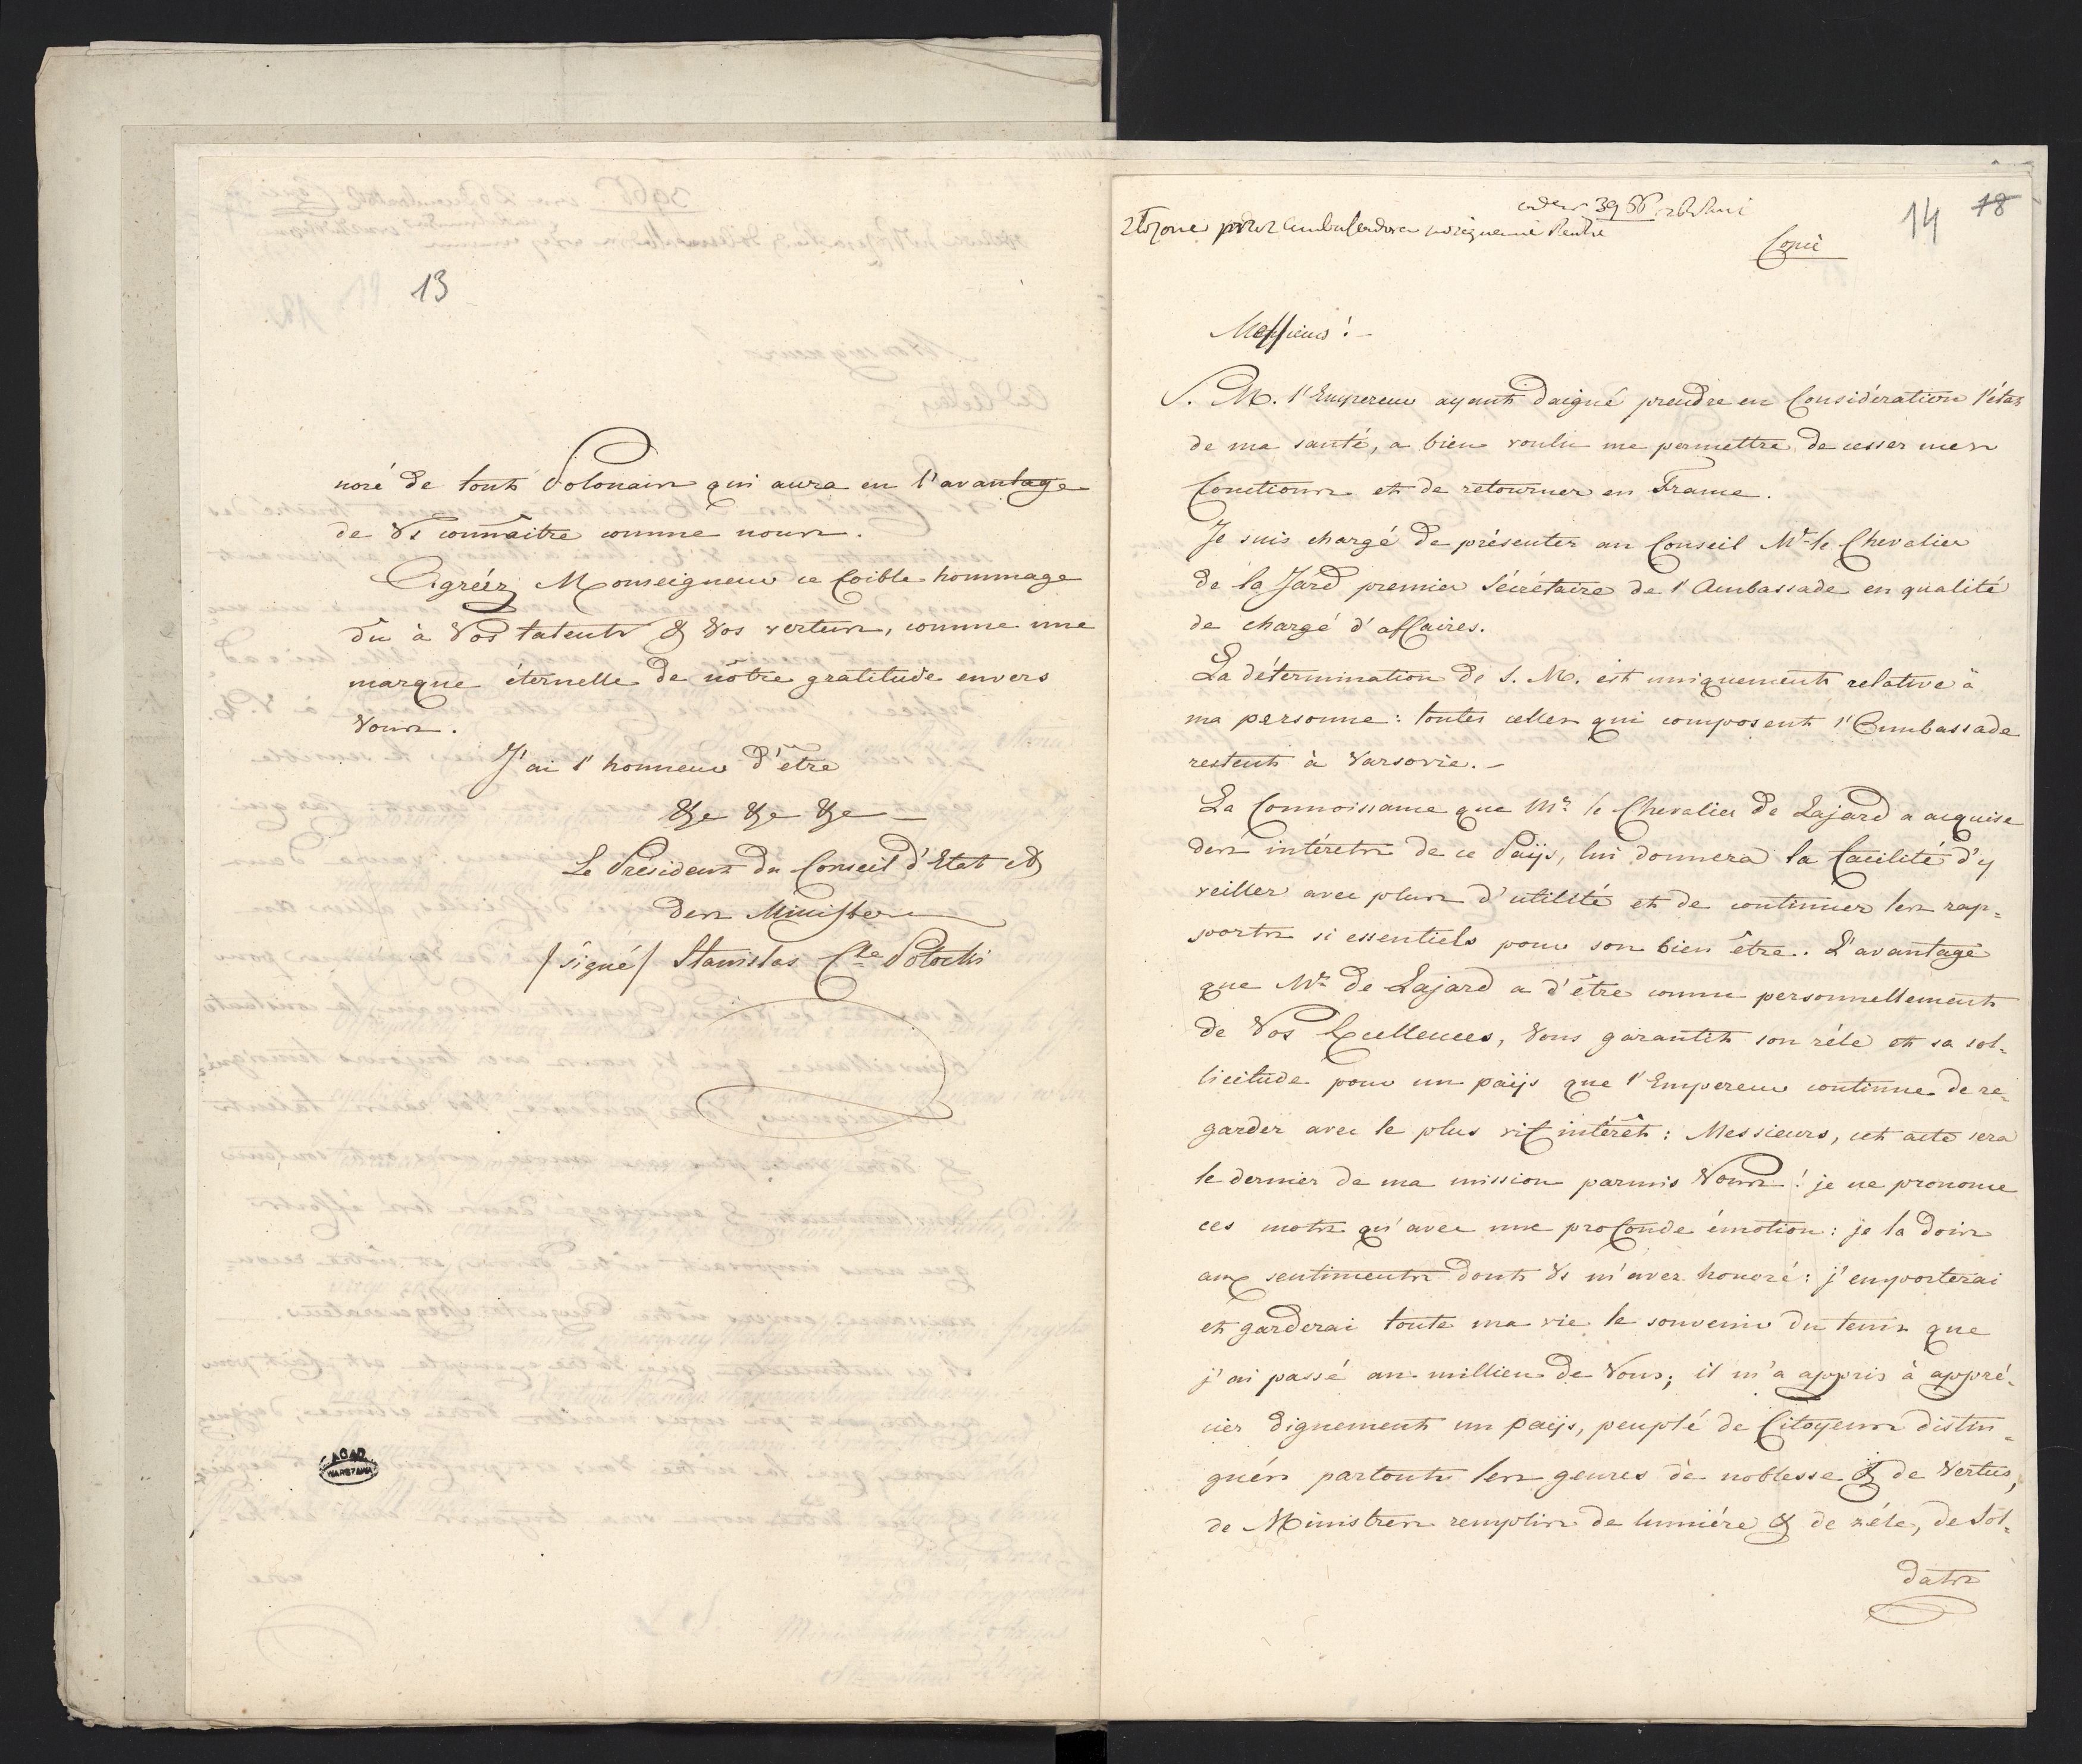 13
noré de tout Polonais qui aura eu l'avantage
de Vs connaître comme nous.
Agréez Monseigneur ce foible hommage
dû à Vos talents & Vos vertus, comme une
marque éternelle de nôtre gratitude envers
Vous.
J'ai l'honneur d'être
&c &c &c
Le Président du Conseil d'Etat et
des Ministres
/signé/ Stanislas Cte Potocki
AGAD
WARSZAWA
ad 3956
złożone przez Ambasadora
14 18
Copie
Messieurs!
S. M. l'Empereur ayant daigné prendre en Considération l'état
de ma santé, a bien voulu me permettre de cesser mes
fonctions et de retourner en France.
Je suis chargé de présenter au Conseil Mr le Chevalier
de la Jard premier Sécrétaire de l'Ambassade en qualité
de chargé d'affaires.
La détermination de S. M. est uniquement relative à
ma personne: toutes celles qui composent l'Ambassade
restent à Varsovie.
La Connoissance que Mr le Chevalier de Lajard a acquise
des intérêts de ce Païjs, lui donnera la facilité d'y
veiller avec plus d'utilité et de continuer les rap=
ports si essentiels pour son bien être. L'avantage
que Mr de Lajard a d'être connu personnellement
de Vos Excellences, Vous garantit son zéle et sa sol=
licitude pour un païjs que l'Empereur continue de re=
garder avec le plus vif intérêt: Messieurs, cet acte sera
le dernier de ma mission parmis Vous! je ne prononce
ces mots qu'avec une profonde émotion: je la dois
aux sentiments dont Vs m'avez honoré: j'emporterai
et garderai toute ma vie le souvenir du tems que
j'ai passé au millieu de Vous; il m'a appris à appré=
cier dignement un païjs, peuplé de Citoyens distin=
gués partouts les genres de noblesse & de Vertus,
de Ministres remplis de lumière & de zéle, de Sol=
dats